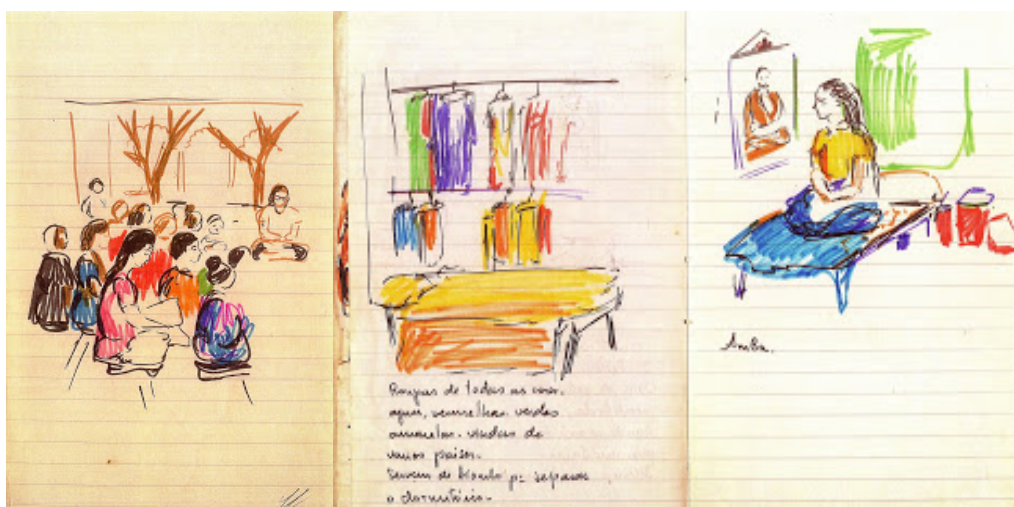 Roupas de todas as cores.
azuis, vermelhas. verdes
amarelas. vindas de
varios paises.
Servem de biombo p: separar
o dormitório.